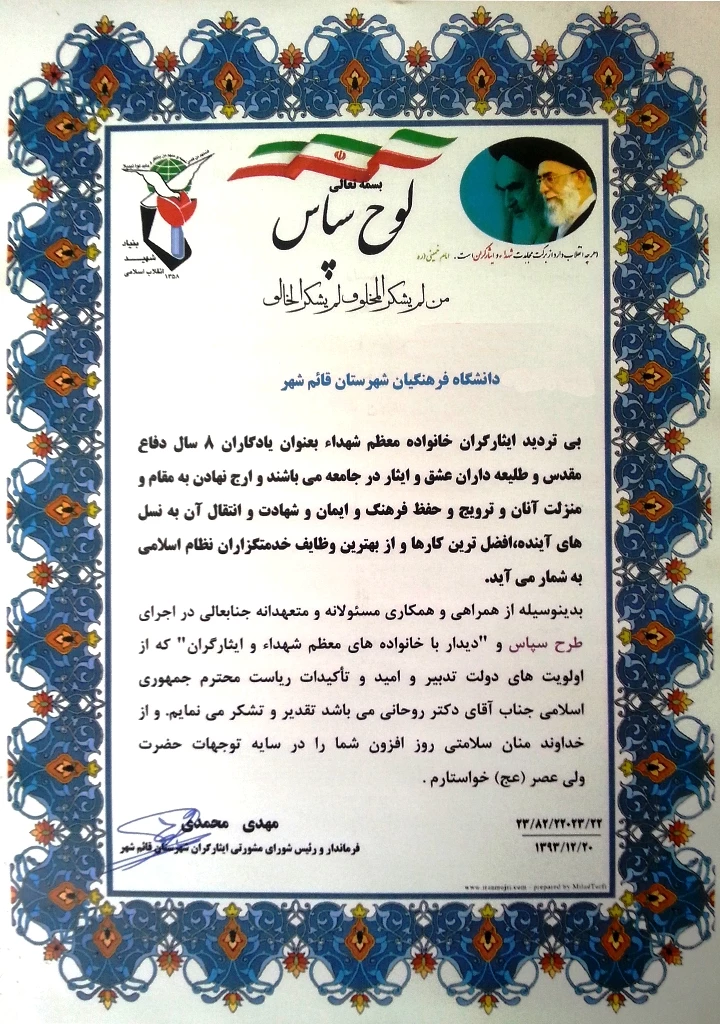 بسمه تعالی
لوح سپاس
بنیاد
شهید
انقلاب اسلامی
۱۳۵۸
هرچه انقلاب دارد از برکت مجاهدت شهداء و ایثارگران است. امام خمینی (ره)
من لم یشکر المخلوق لم یشکر الخالق
دانشگاه فرهنگیان شهرستان قائم شهر
بی تردید ایثارگران خانواده معظم شهداء بعنوان یادگاران ۸ سال دفاع
مقدس و طلیعه داران عشق و ایثار در جامعه می باشند و ارج نهادن به مقام و
منزلت آنان و ترویج و حفظ فرهنگ و ایمان و شهادت و انتقال آن به نسل
های آینده،افضل ترین کارها و از بهترین وظایف خدمتگزاران نظام اسلامی
به شمار می آید.
بدینوسیله از همراهی و همکاری مسئولانه و متعهدانه جنابعالی در اجرای
طرح سپاس و "دیدار با خانواده های معظم شهداء و ایثارگران" که از
اولویت های دولت تدبیر و امید و تأکیدات ریاست محترم جمهوری
اسلامی جناب آقای دکتر روحانی می باشد تقدیر و تشکر می نمایم. و از
خداوند منان سلامتی روز افزون شما را در سایه توجهات حضرت
ولی عصر (عج) خواستارم .
مهدی محمدی
فرماندار و رئیس شورای مشورتی ایثارگران شهرستان قائم شهر
۲۳/۸۲/۲۲۰۲۳/۲۲
۱۳۹۳/۱۲/۲۰
prepared by MiladTarfi